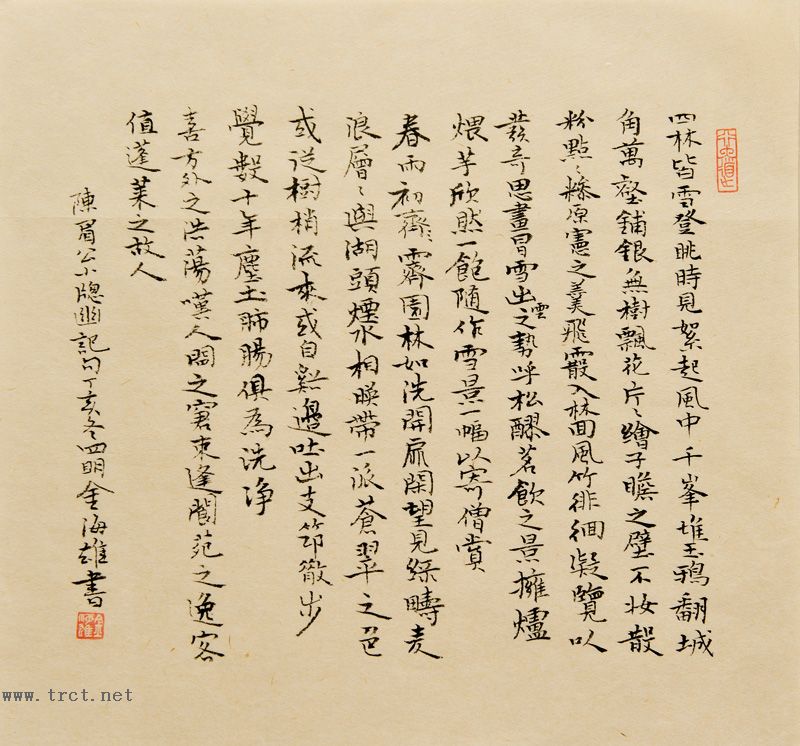 四林皆雪登眺時見絮起風中千峯堆玉鴉翻城
角萬壑鋪銀無樹飄花片〻繪子瞻之壁不妝散
粉點〻糝原憲之羹飛霰入林囬風竹徘徊凝覽以
發奇思畫冒雪出雲之勢呼松醪茗飲之景擁爐
煨芋欣然一飽随作雪景一幅以寄僧賞
春雨初霽〻園林如洗開扉閑望見綠疇麦
浪層〻與湖頭煙水相映帶一派蒼翠之色
或從樹梢流来或自谿邊吐出支筇散步
覺數十年塵土肺腸俱為洗淨
喜方外之洪蕩嘆人間之窘束逢閬苑之逸客
值蓬莱之故人
陳眉公小牕幽記句丁亥冬四明金海雄書
金海雄
www.trct.net